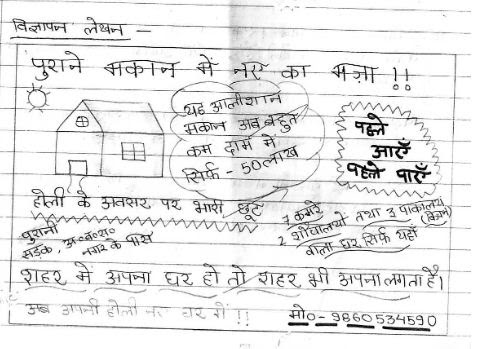 विज्ञापन लेखन -
पुराने मकान में नए का मज़ा !!
यह आलीशान
मकान अब बहुत
कम दाम में
सिर्फ - 50 लाख
पहले
आएँ
पहले पाएँ
होली के अवसर पर भारी छूट
7 कमरे
2 शौचालयों तथा 3 पाकालय
(किचन)
वाला घर सिर्फ यहाँ
पुरानी
सड़क, अ०ब०स०
नगर के पास
शहर में अपना घर हो तो शहर भी अपना लगता है।
अब अपनी होली नए घर में !!
मो०- 9860534590